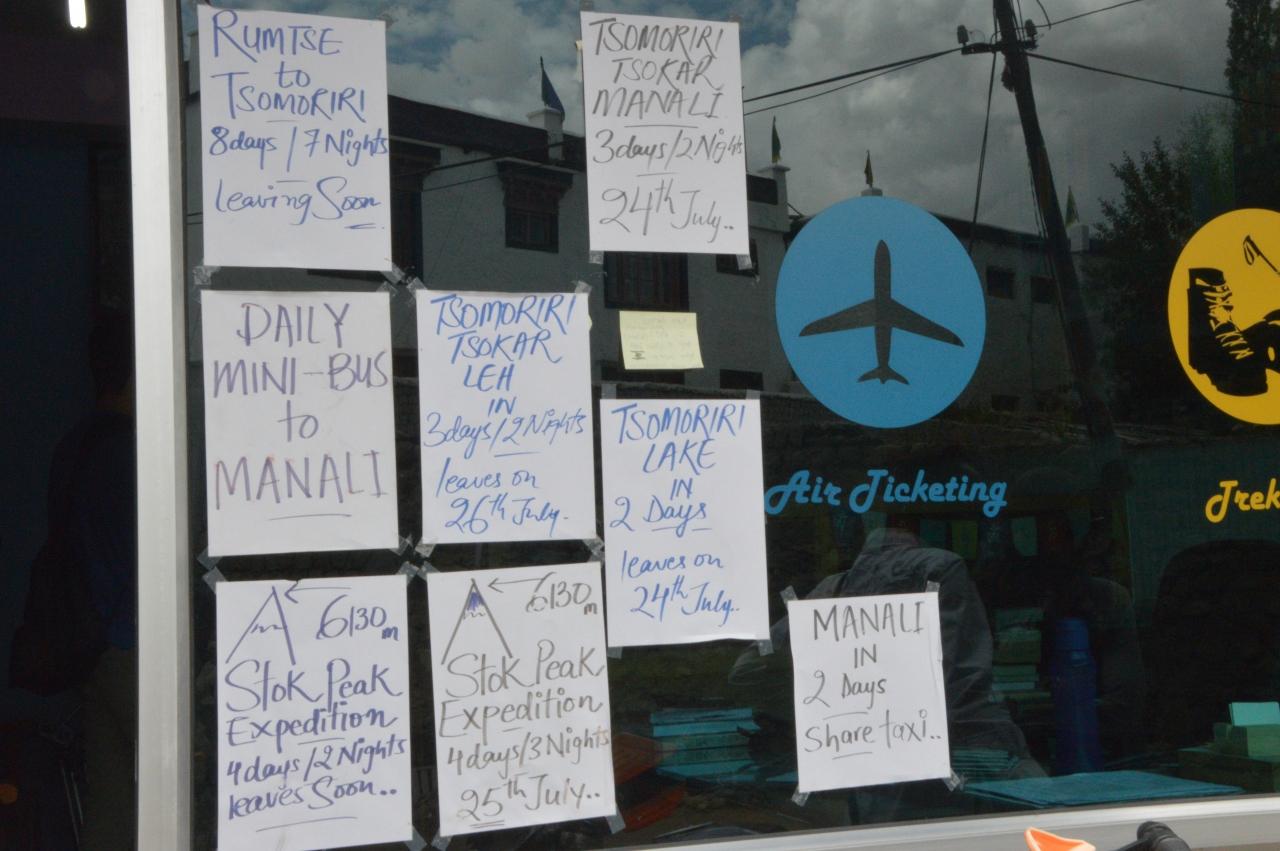 RUMTSE
to
TSOMORIRI
8days / 7 Nights
leaving Soon
TSOMORIRI
TSOKAR
MANALI
3days/2Nights
24th July..
DAILY
MINI-BUS
to
MANALI
TSOMORIRI
TSOKAR
LEH
IN
3days/2Nights
leaves on
26th July.
TSOMORIRI
LAKE
IN
2 Days
leaves on
24th July..
Air Ticketing
Trek
6130m
Stok Peak
Expedition
4days/2 Nights
leaves Soon..
6130m
Stok Peak
Expedition
4days/3Nights
25th July..
MANALI
IN
2 Days
Share taxi..